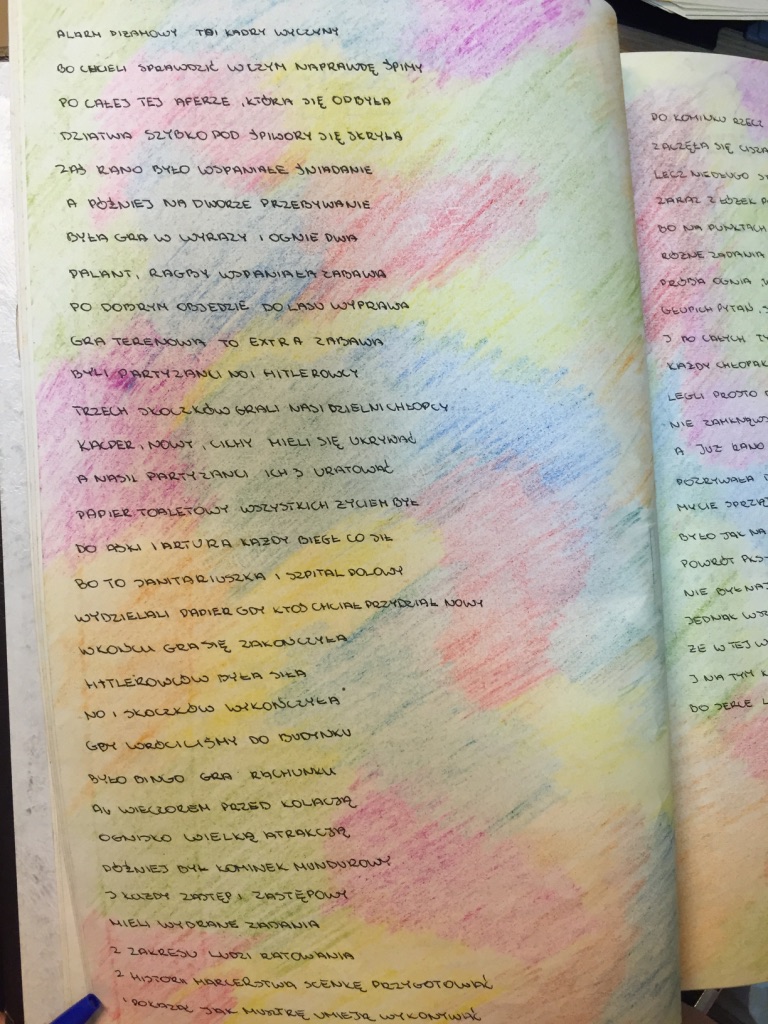 ALARM PIŻAMOWY TO I KADRY WYCZYNY
BO CHCIELI SPRAWDZIĆ W CZYM NAPRAWDĘ ŚPIMY
PO CAŁEJ TEJ AFERZE, KTÓRA SIĘ ODBYŁA
DZIATWA SZYBKO POD ŚPIWORY SIĘ SKRYŁA
ZAŚ RANO BYŁO WSPANIAŁE ŚNIADANIE
A PÓŹNIEJ NA DWORZE PRZEBYWANIE
BYŁA GRA W WYRAZY I OGNIE DWA
PALANT, RAGBY WSPANIAŁA ZABAWA
PO DOBRYM OBJEDZIE DO LASU WYPRAWA
GRA TERENOWA TO EXTRA ZABAWA
BYLI PARTYZANCI NO I HITLEROWCY
TRZECH SKOCZKÓW GRALI NASI DZIELNI CHŁOPCY
KACPER, NOWY, CICHY MIELI SIĘ UKRYWAĆ
A NASIL PARTYZANCI ICH 3 URATOWAĆ
PAPIER TOALETOWY WSZYSTKICH ŻYCIEM BYŁ
DO ASKI I ARTURA KAŻDY BIEGŁ CO SIŁ
BO TO SANITARIUSZKA I SZPITAL POLOWY
WYDZIELALI PAPIER GDY KTOŚ CHCIAŁ PRZYDZIAŁ NOWY
WKOŃCU GRA SIĘ ZAKOŃCZYŁA
HITLEROWCÓW BYŁA SIŁA
NO I SKOCZKÓW WYKOŃCZYŁA
GDY WRÓCILIŚMY DO BUDYNKU
BYŁO BINGO GRA RACHUNKU
WIECZOREM PRZED KOLACJĄ
OGNISKO WIELKĄ ATRAKCJĄ
PÓŹNIEJ BYŁ KOMINEK MUNDUROWY
I KAŻDY ZASTĘP I ZASTĘPOWY
MIELI WYBRANE ZADANIA
Z ZAKRESU LUDZI RATOWANIA
Z HISTORII HARCERSTWA SCENKĘ PRZYGOTOWAĆ
POKAZAĆ JAK MUSTRĘ UMIEJĄ WYKONYWAĆ
DO KOMINKU RZECZ
ZACZĘŁA SIĘ CISZA
LECZ NIEDŁUGO
ZARAZ Z ŁÓŻEK
BO NA PUNKTACH
RÓŻNE ZADANIA
PRÓBA OGNIA
GŁUPICH PYTAŃ
I PO CAŁYCH
KAŻDY CHŁOPAK
LEGLI PROSTO
NIE ZAMKNĄWSZ
A JUŻ RANO
POZRYWAŁA
MYCIE SPRZĄT
BYŁO JAK NA
POWRÓT PKS
NIE BYŁ NAJ
JEDNAK WSZ
ŻE W TEJ
I NA TYM
DO SERC